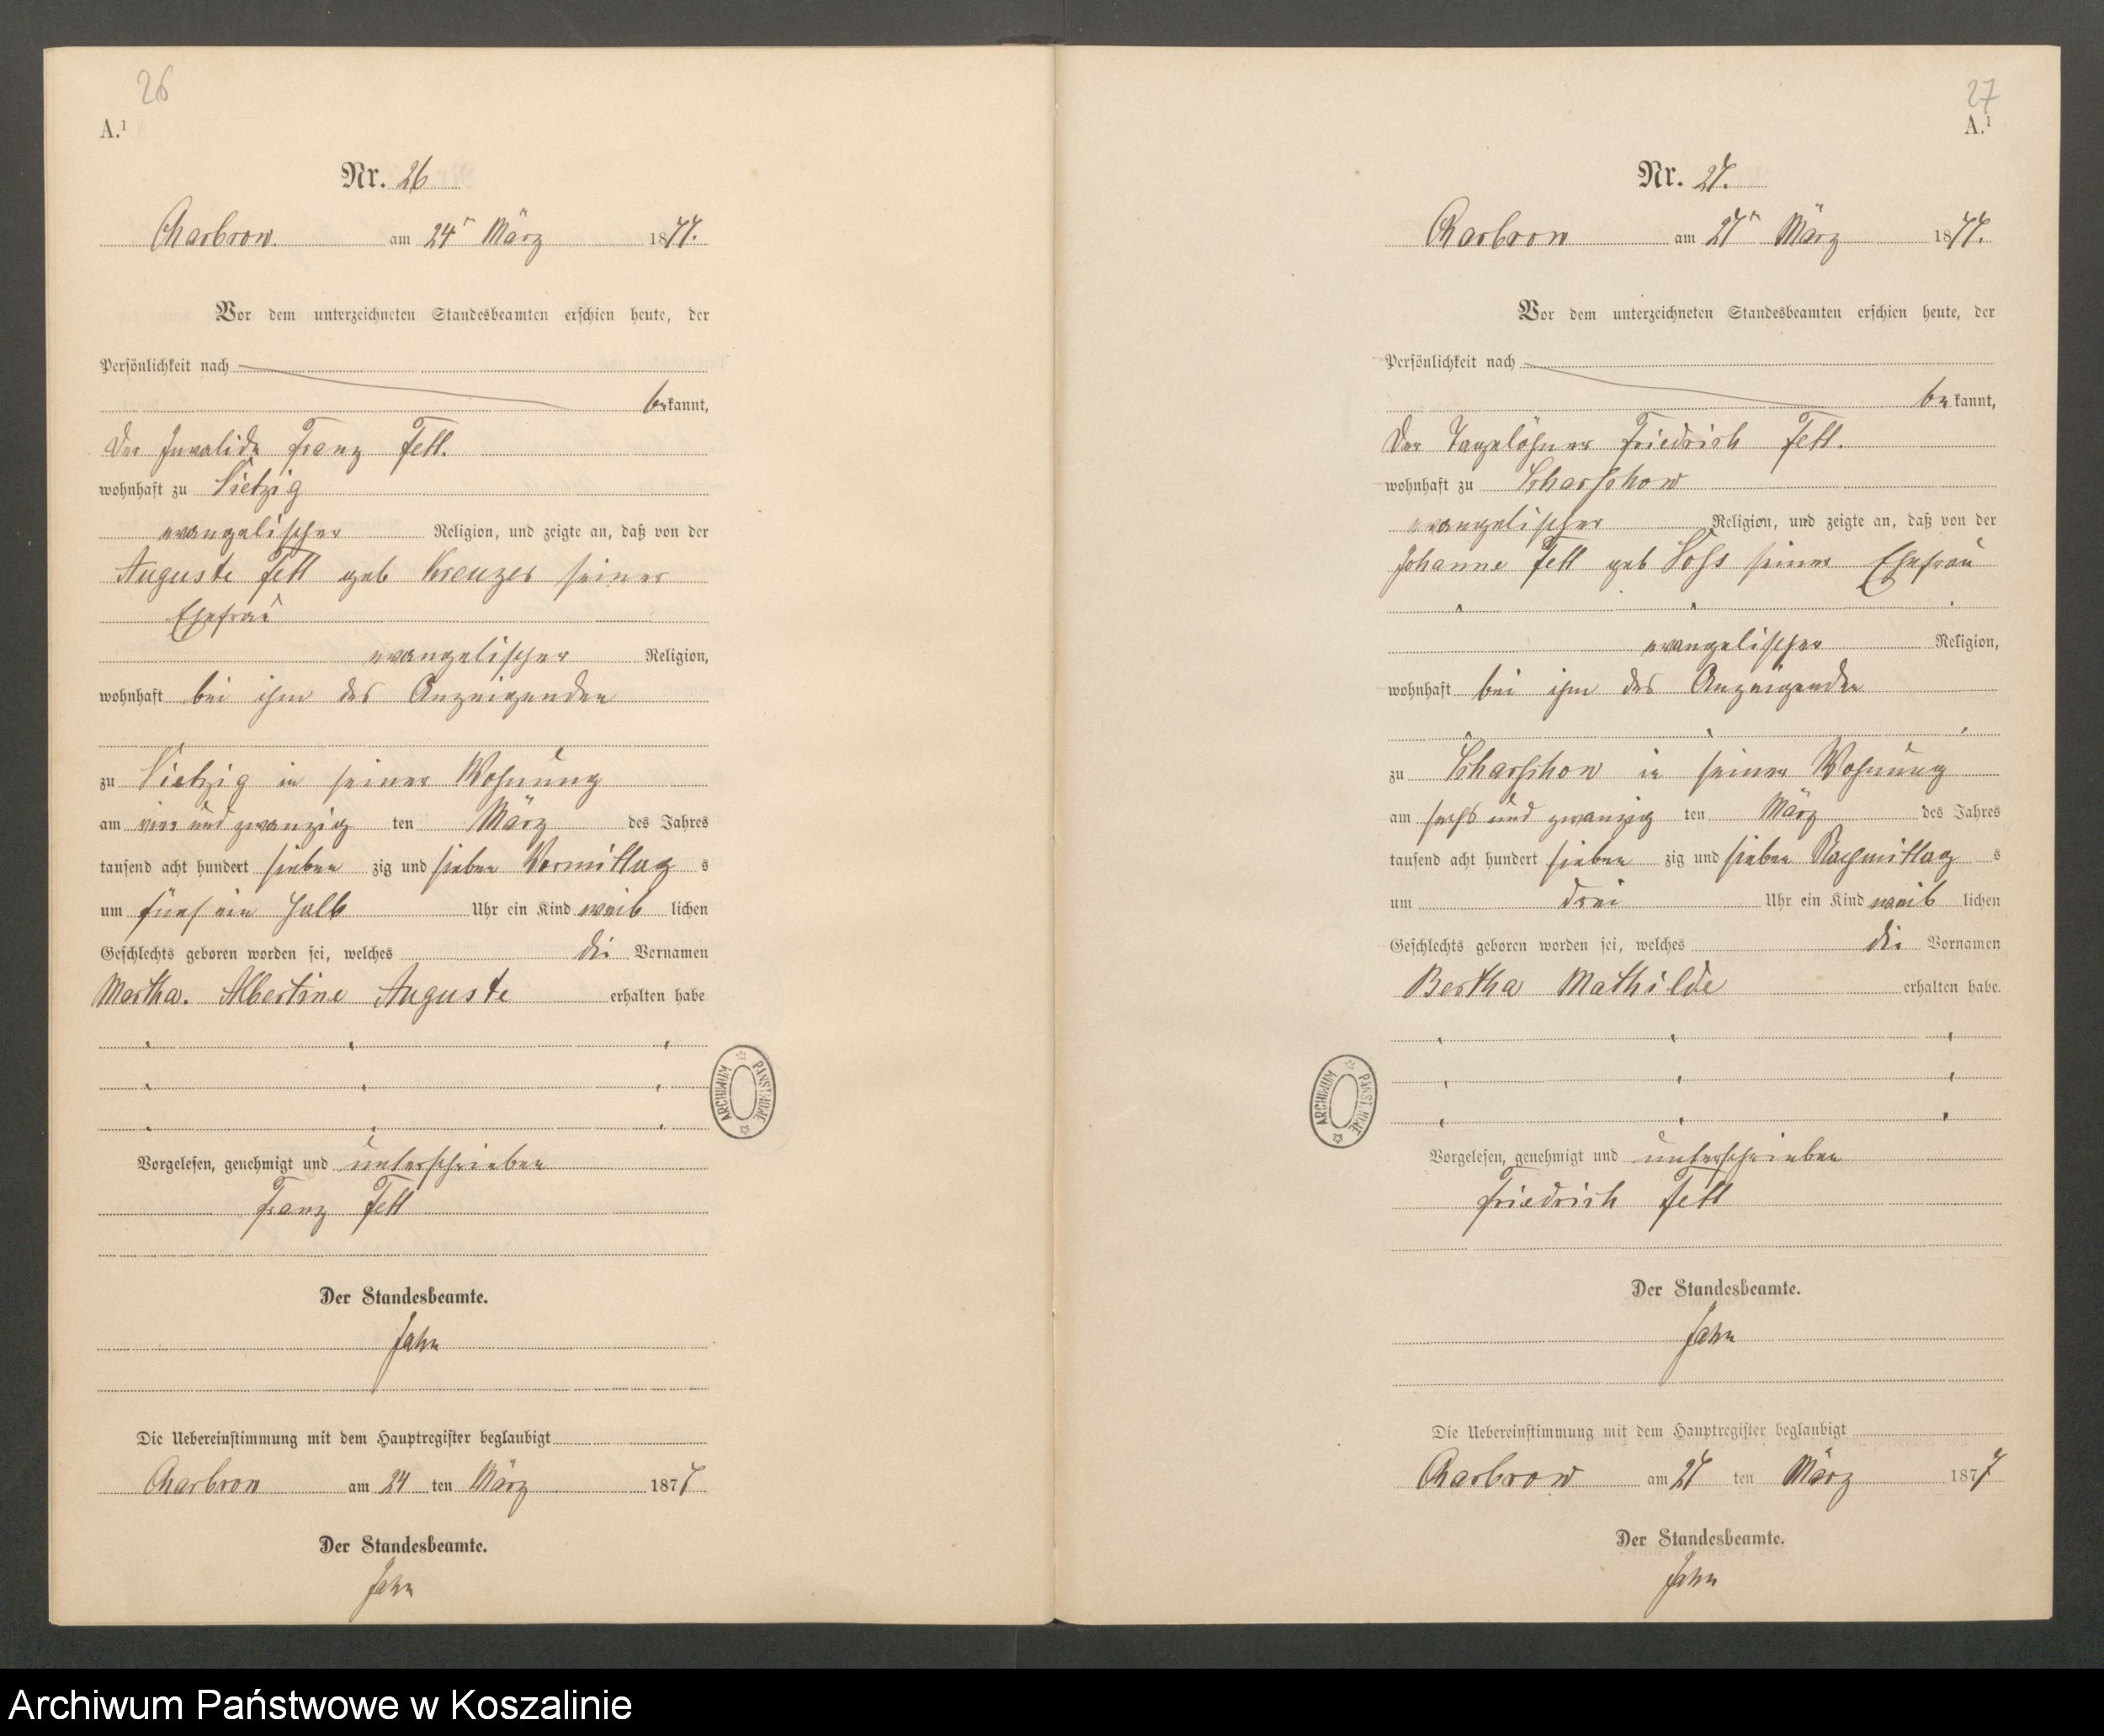 26
A.¹
Nr. 26
Charbrow. am 24ᵗ März 1877.
Vor dem unterzeichneten Standesbeamten erschien heute, der
Persönlichkeit nach
bekannt,
Der Invalide Franz Fett.
wohnhaft zu Vietzig
evangelischer Religion, und zeigte an, daß von der
Auguste Fett geb Kreuzer seiner
Ehefrau
evangelischer Religion,
wohnhaft bei ihm des Anzeigenden
zu Vietzig in seiner Wohnung
am vier und zwanzig ten März des Jahres
tausend acht hundert sieben zig und sieben Vormittag s
um fünf ein halb Uhr ein Kind weib lichen
Geschlechts geboren worden sei, welches die Vornamen
Martha. Albertine Auguste erhalten habe
Vorgelesen, genehmigt und unterschrieben
Franz Fett
Der Standesbeamte.
Jahn
Die Uebereinstimmung mit dem Hauptregister beglaubigt
Charbrow am 24 ten März 1877
Der Standesbeamte.
Jahn
ARCHIWUM PAŃSTWOWE
27
A.¹
Nr. 27.
Charbrow am 27ᵗ März 1877.
Vor dem unterzeichneten Standesbeamten erschien heute, der
Persönlichkeit nach
bekannt,
Der Tagelöhner Friedrich Fett.
wohnhaft zu Scharschow
evangelischer Religion, und zeigte an, daß von der
Johanne Fett geb Voss seiner Ehefrau
evangelischer Religion,
wohnhaft bei ihm des Anzeigenden
zu Scharschow in seiner Wohnung
am sechs und zwanzig ten März des Jahres
tausend acht hundert sieben zig und sieben Nachmittag s
um drei Uhr ein Kind weib lichen
Geschlechts geboren worden sei, welches die Vornamen
Bertha Mathilde erhalten habe.
Vorgelesen, genehmigt und unterschrieben
Friedrich Fett
Der Standesbeamte.
Jahn
Die Uebereinstimmung mit dem Hauptregister beglaubigt
Charbrow am 27 ten März 1877
Der Standesbeamte.
Jahn
ARCHIWUM PAŃSTWOWE
Archiwum Państwowe w Koszalinie